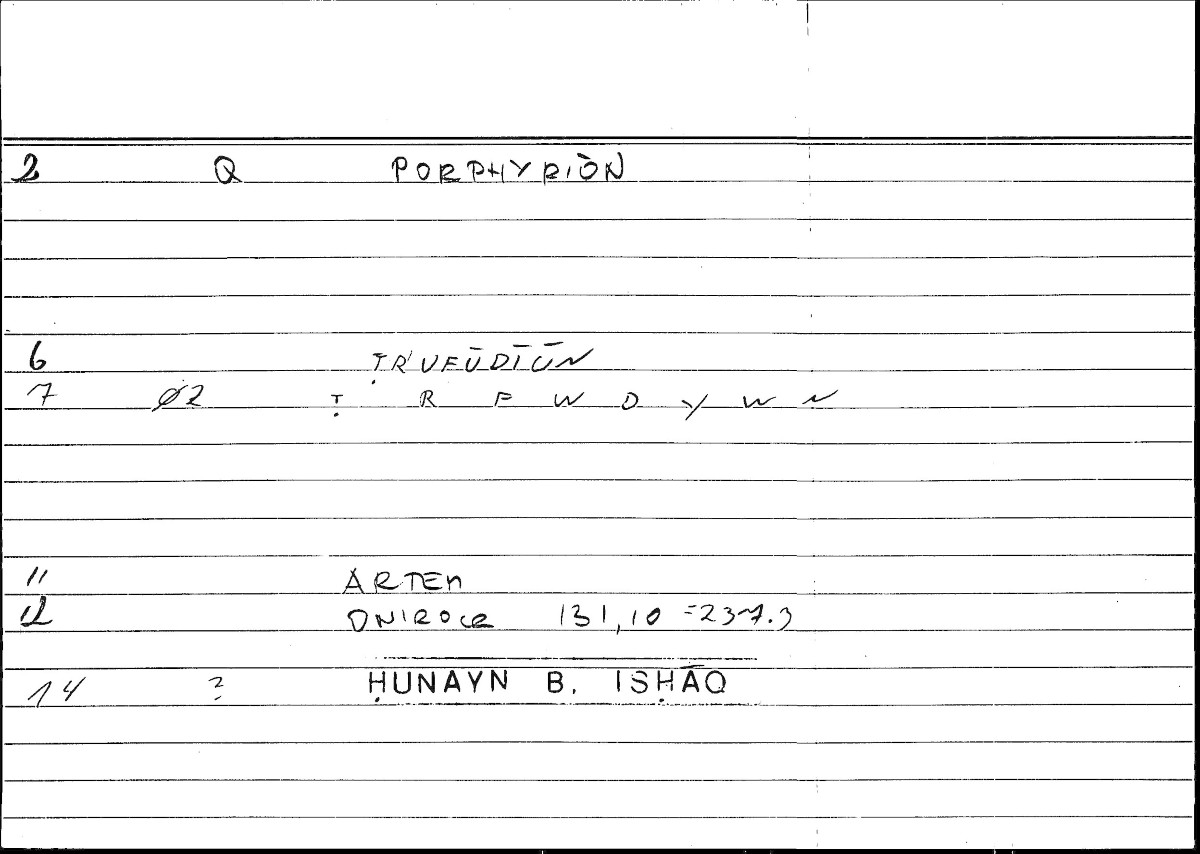 2 Q PORPHYRIÒN
6 ṬR'UFŪDĪŪN
7 Ø2 Ṭ R F W D Y W N
11 ARTEM
12 ONIROCR 131,10 =237.3
14 ? ḤUNAYN B. ISḤĀQ